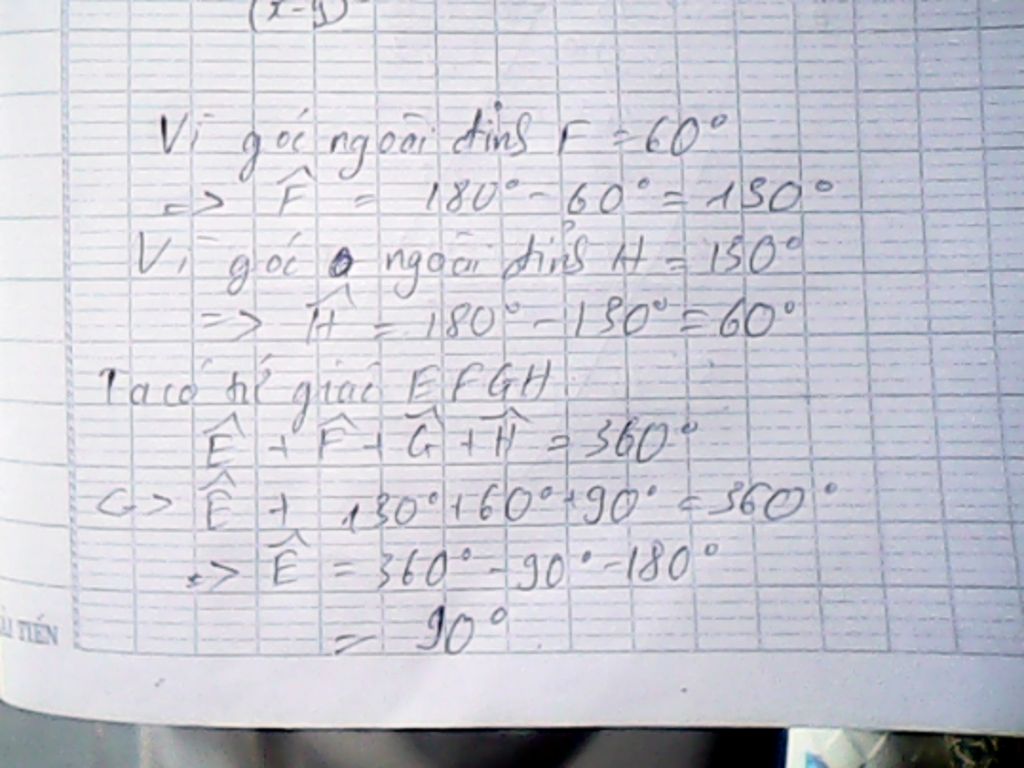 (x-y)
Vì góc ngoài đỉnh F = 60°
=> F̂ = 180° - 60° = 130°
Vì góc ngoài đỉnh H = 130°
=> Ĥ = 180° - 130° = 60°
Ta có tứ giác EFGH
Ê + F̂ + Ĝ + Ĥ = 360°
<=> Ê + 130° + 60° + 90° = 360°
=> Ê = 360° - 90° - 180°
= 90°
ẢI TIẾN